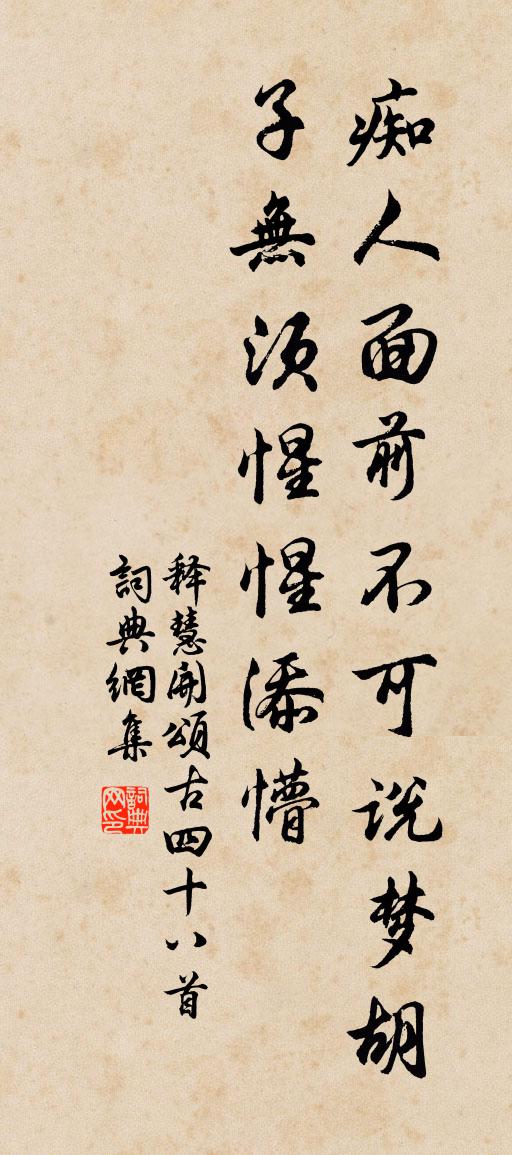 痴人面前不可说梦胡
子無须惺惺添懵
释慧開頌古四十八首
詞典網集
詞典网印